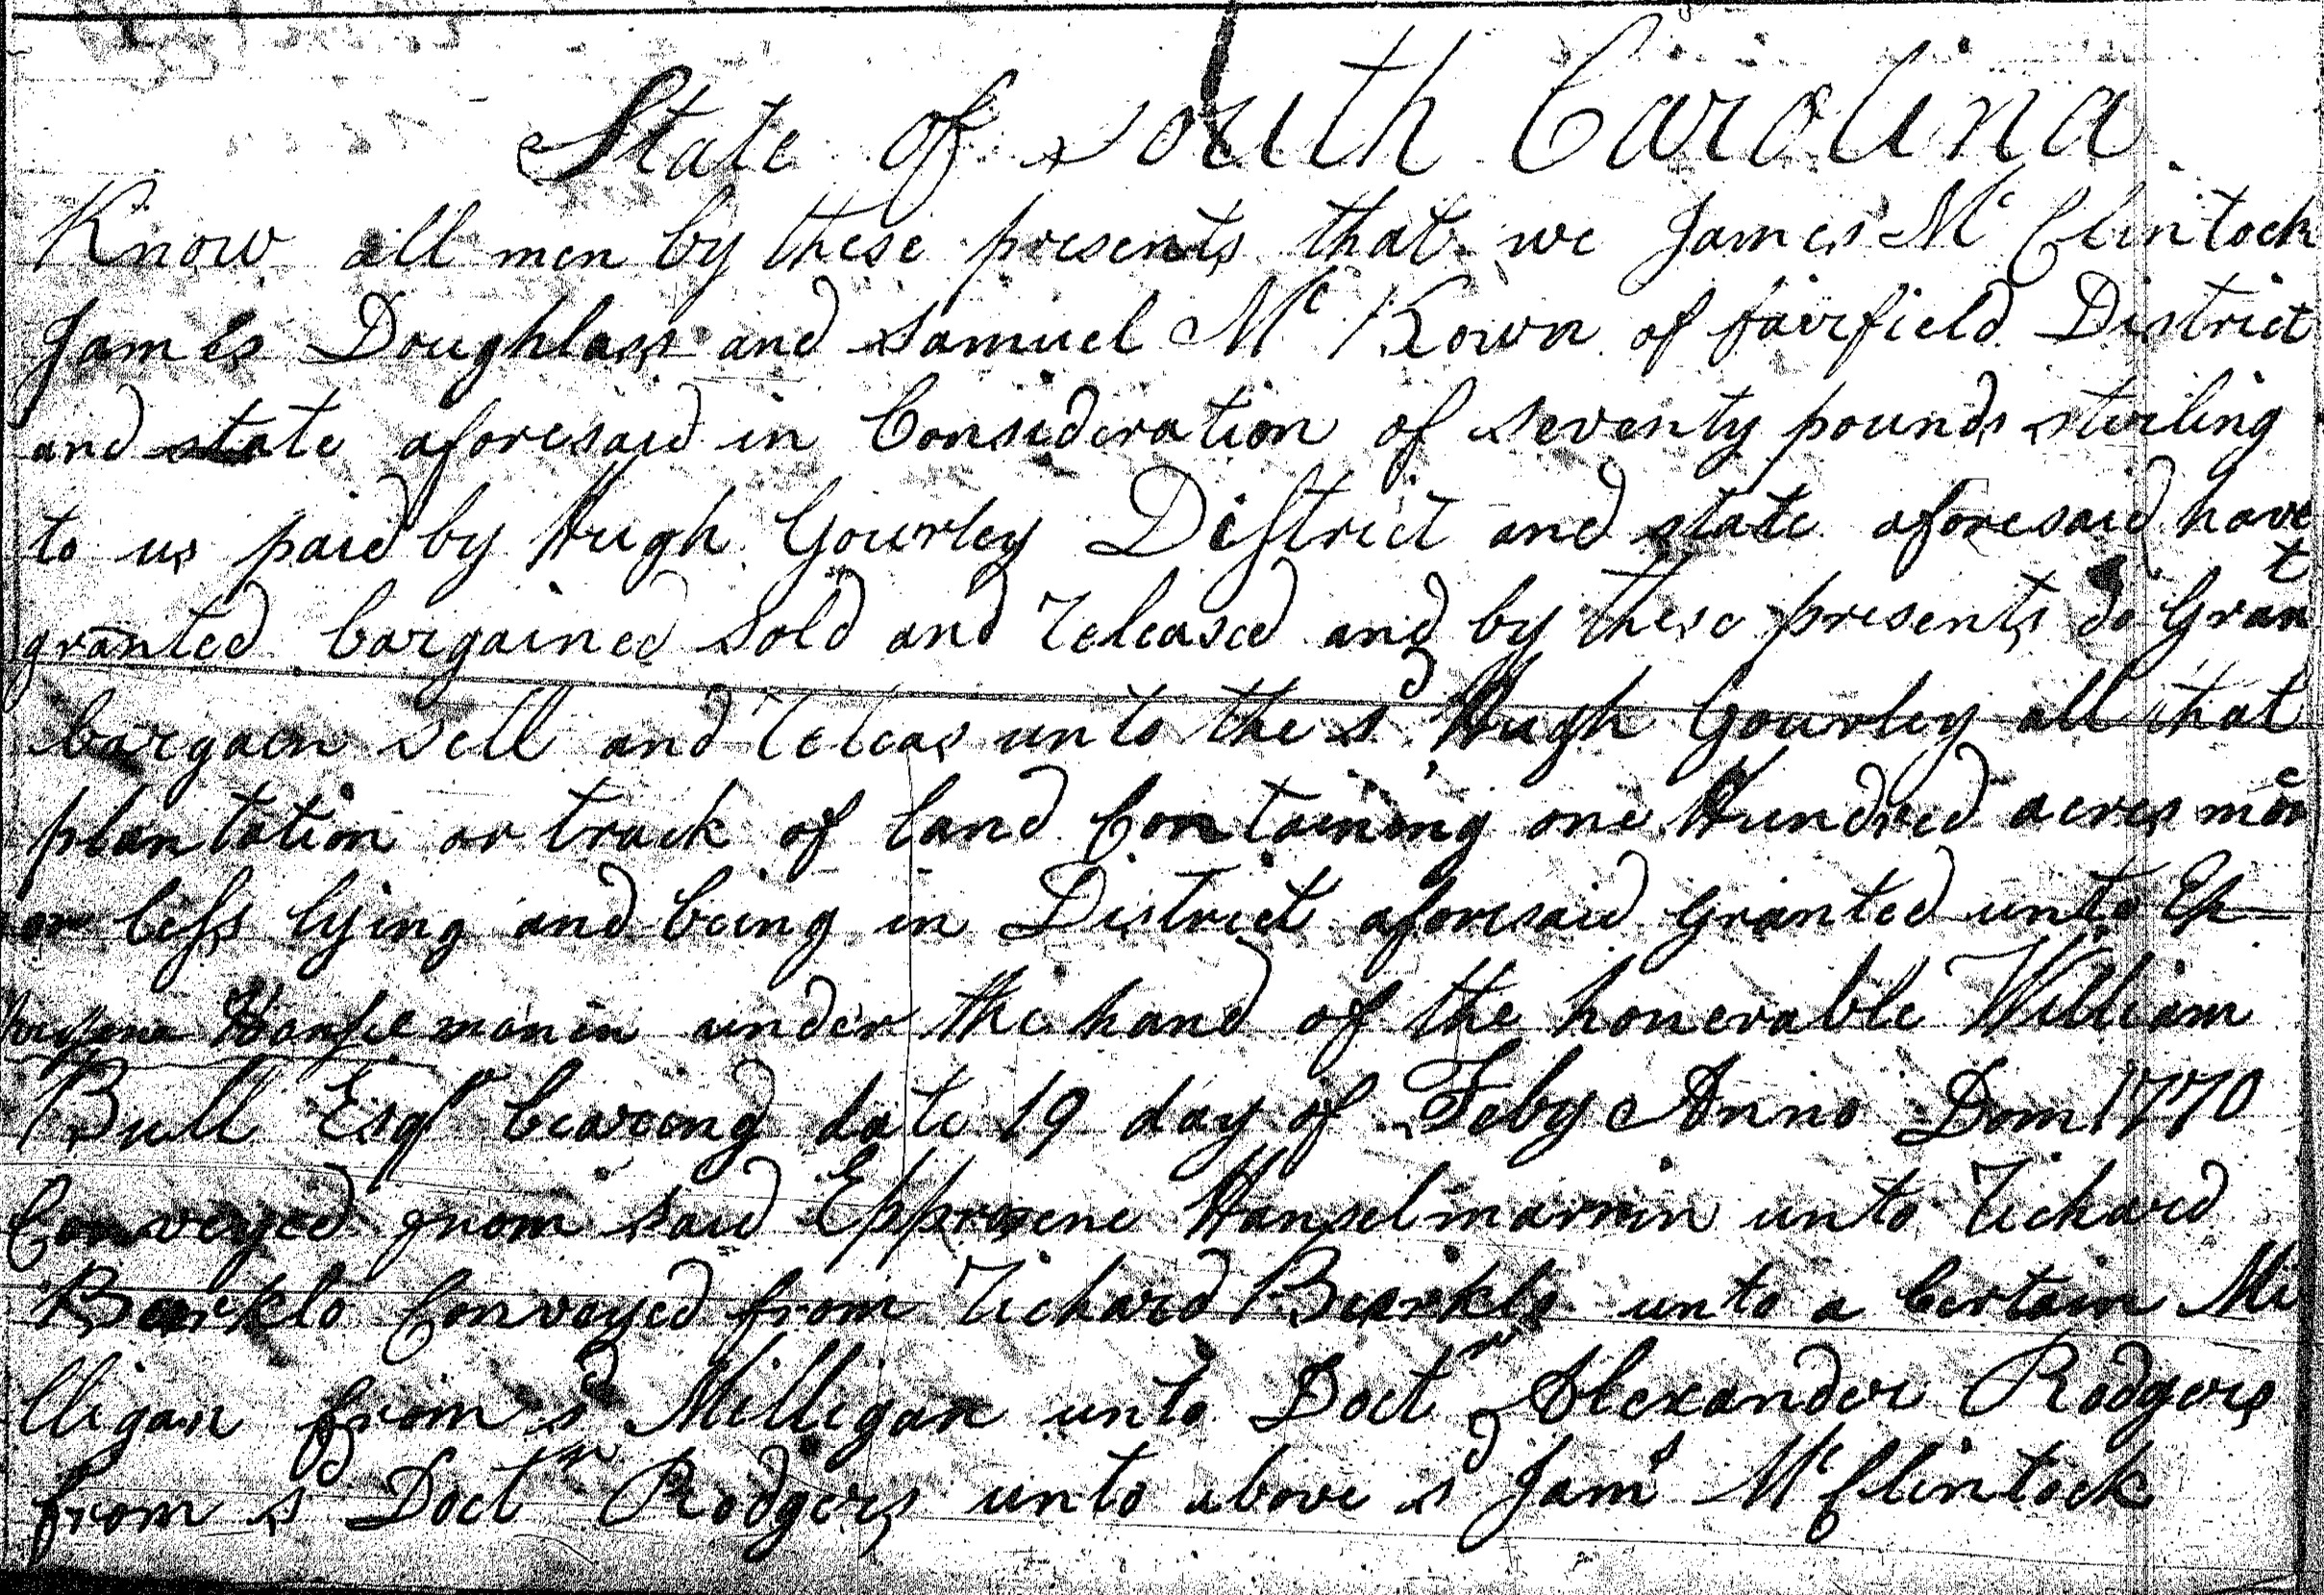 State of South Carolina
Know all men by these presents that we James Mc Clintock
James Doughlass and Samuel Mc Kown of fairfield District
and state aforesaid in Consideration of seventy pounds sterling
to us paid by Hugh Gourley District and state aforesaid have
granted bargained Sold and released and by these presents do Grant
bargain sell and releas unto the sd Hugh Gourley all that
plantation or track of land Containing one Hundred acres more
or less lying and being in District aforesaid Granted unto Ep
under the hand of the honerable William
Bull Esqr bearing date 19 day of Feby Anno Dom 1770
Conveyed from said Epprosene Hanselmannin unto richard
Conveyed from richard unto a Certain Mi
lligan from sd Milligan unto Doctr Alexander Rodgers
from sd Doctr Rodgers unto above sd Jams Mc Clintock